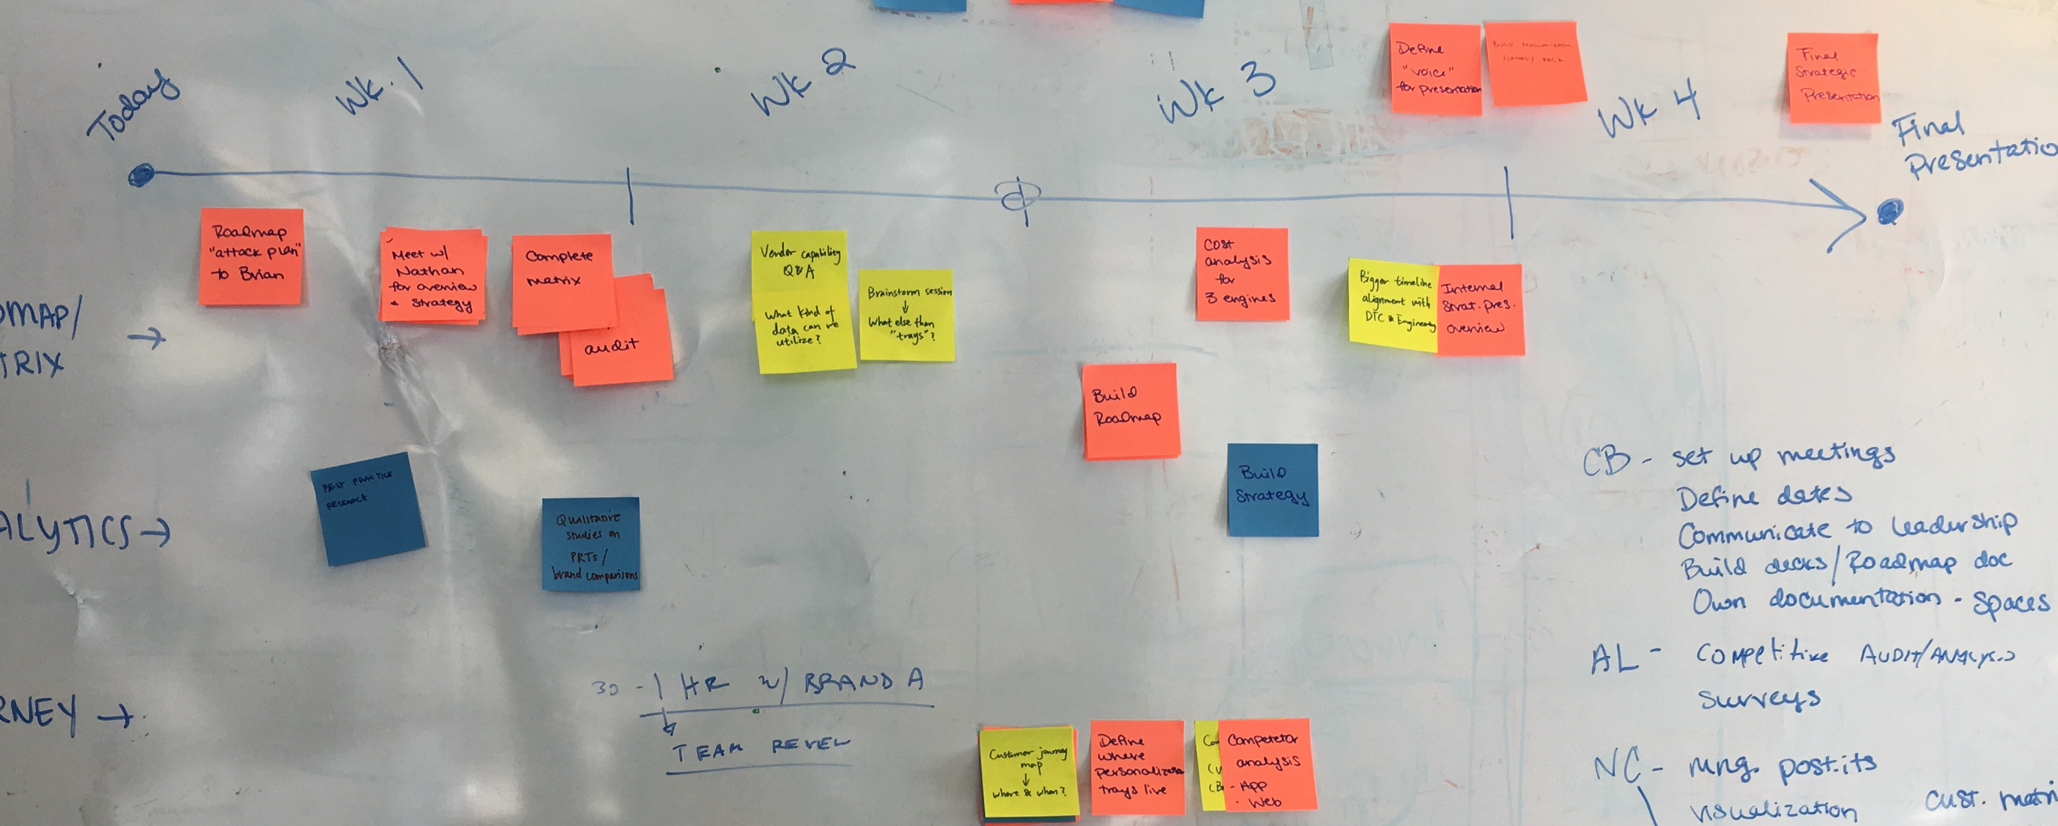 Today
Wk. 1
Wk 2
Wk 3
Wk 4
Final
Presentatio
Define
"voice"
for presentation
Final
Strategic
Presentation
Roadmap
"attack plan"
to Brian
Meet w/
Nathan
for overview
& Strategy
Complete
matrix
audit
Vendor capability
Q&A
What kind of
data can we
utilize?
Brainstorm session
↓
What else than
"trays"?
Cost
analysis
for
3 engines
Bigger timeline
alignment with
DTC & Engineering
Internal
Strat. pres.
overview
OMAP/
TRIX →
Build
Roadmap
ALYTICS →
BEST PRACTICE
RESEARCH
Qualitative
studies on
PRTs /
brand comparisons
Build
Strategy
RNEY →
30 - 1 HR w/ BRAND A
TEAM REVEL
Customer journey
map
↓
where & when?
Define
where
personalization
trays live
Com
(B
Competetor
analysis
- App
- Web
CB - set up meetings
Define dates
Communicate to leadership
Build decks/Roadmap doc
Own documentation - Spaces
AL - Competitive AUDIT/ANALYSIS
Surveys
NC - mng. post.its
visualization
cust. matri